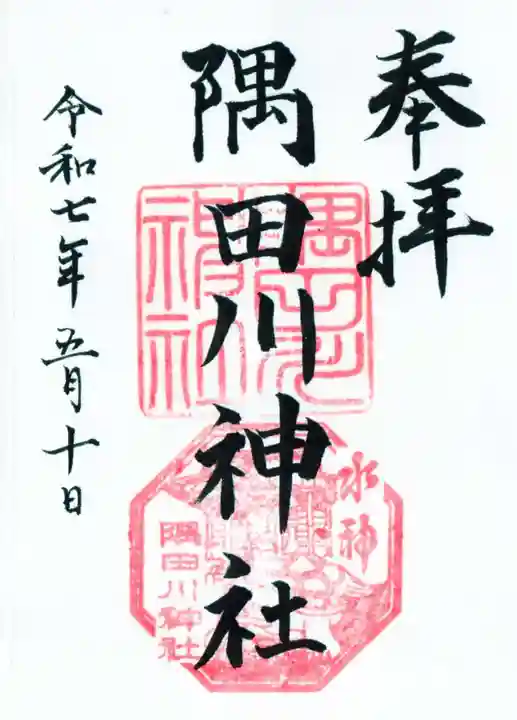 奉拝
隅田川神社
水神
隅田川神社
令和七年五月十日